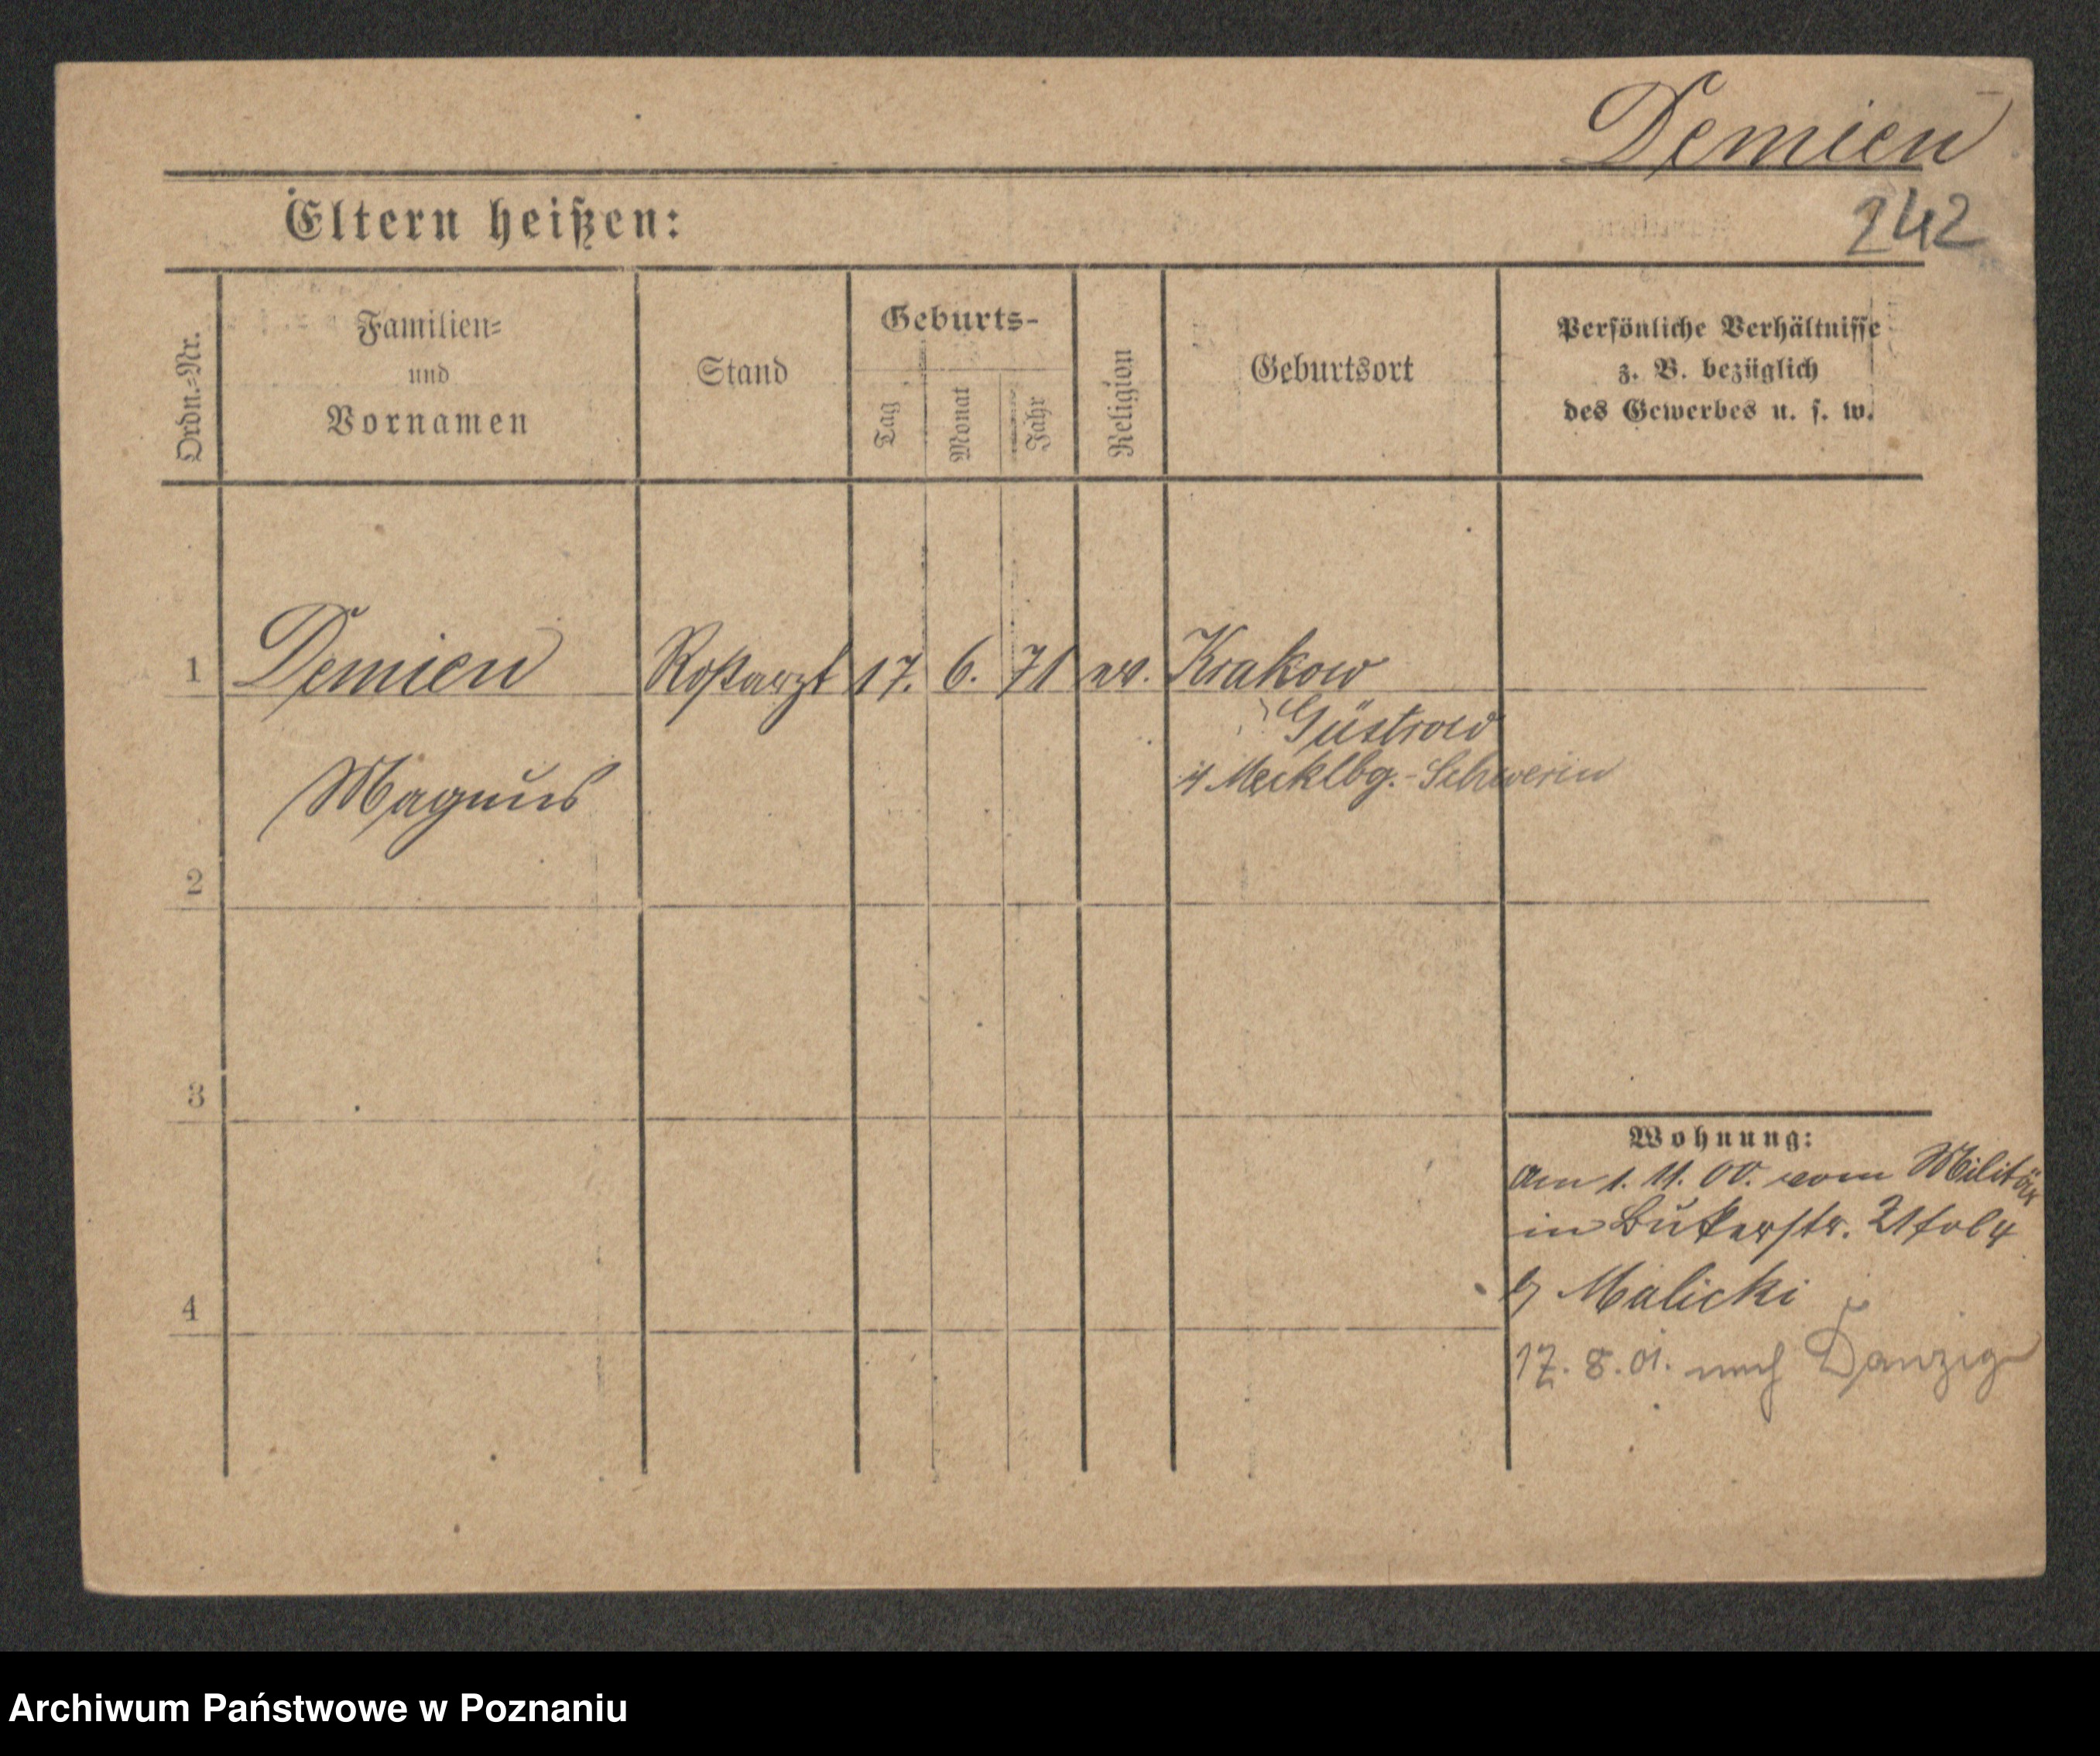 Demien
Eltern heißen:
242
Ordn.-Nr.
Familien-
und
Vornamen
Stand
Geburts-
Tag
Monat
Jahr
Religion
Geburtsort
Persönliche Verhältnisse
z. B. bezüglich
des Gewerbes u. s. w.
1 Demien Roßarzt 17. 6. 71 ev. Krakow
Güstrow
Mecklbg.-Schwerin
Magnus
2
3
4
Wohnung:
Am 1. 11. 00. vom Militär
in Bukerstr. 21
b/ Malicki
17. 8. 01. nach Danzig
Archiwum Państwowe w Poznaniu